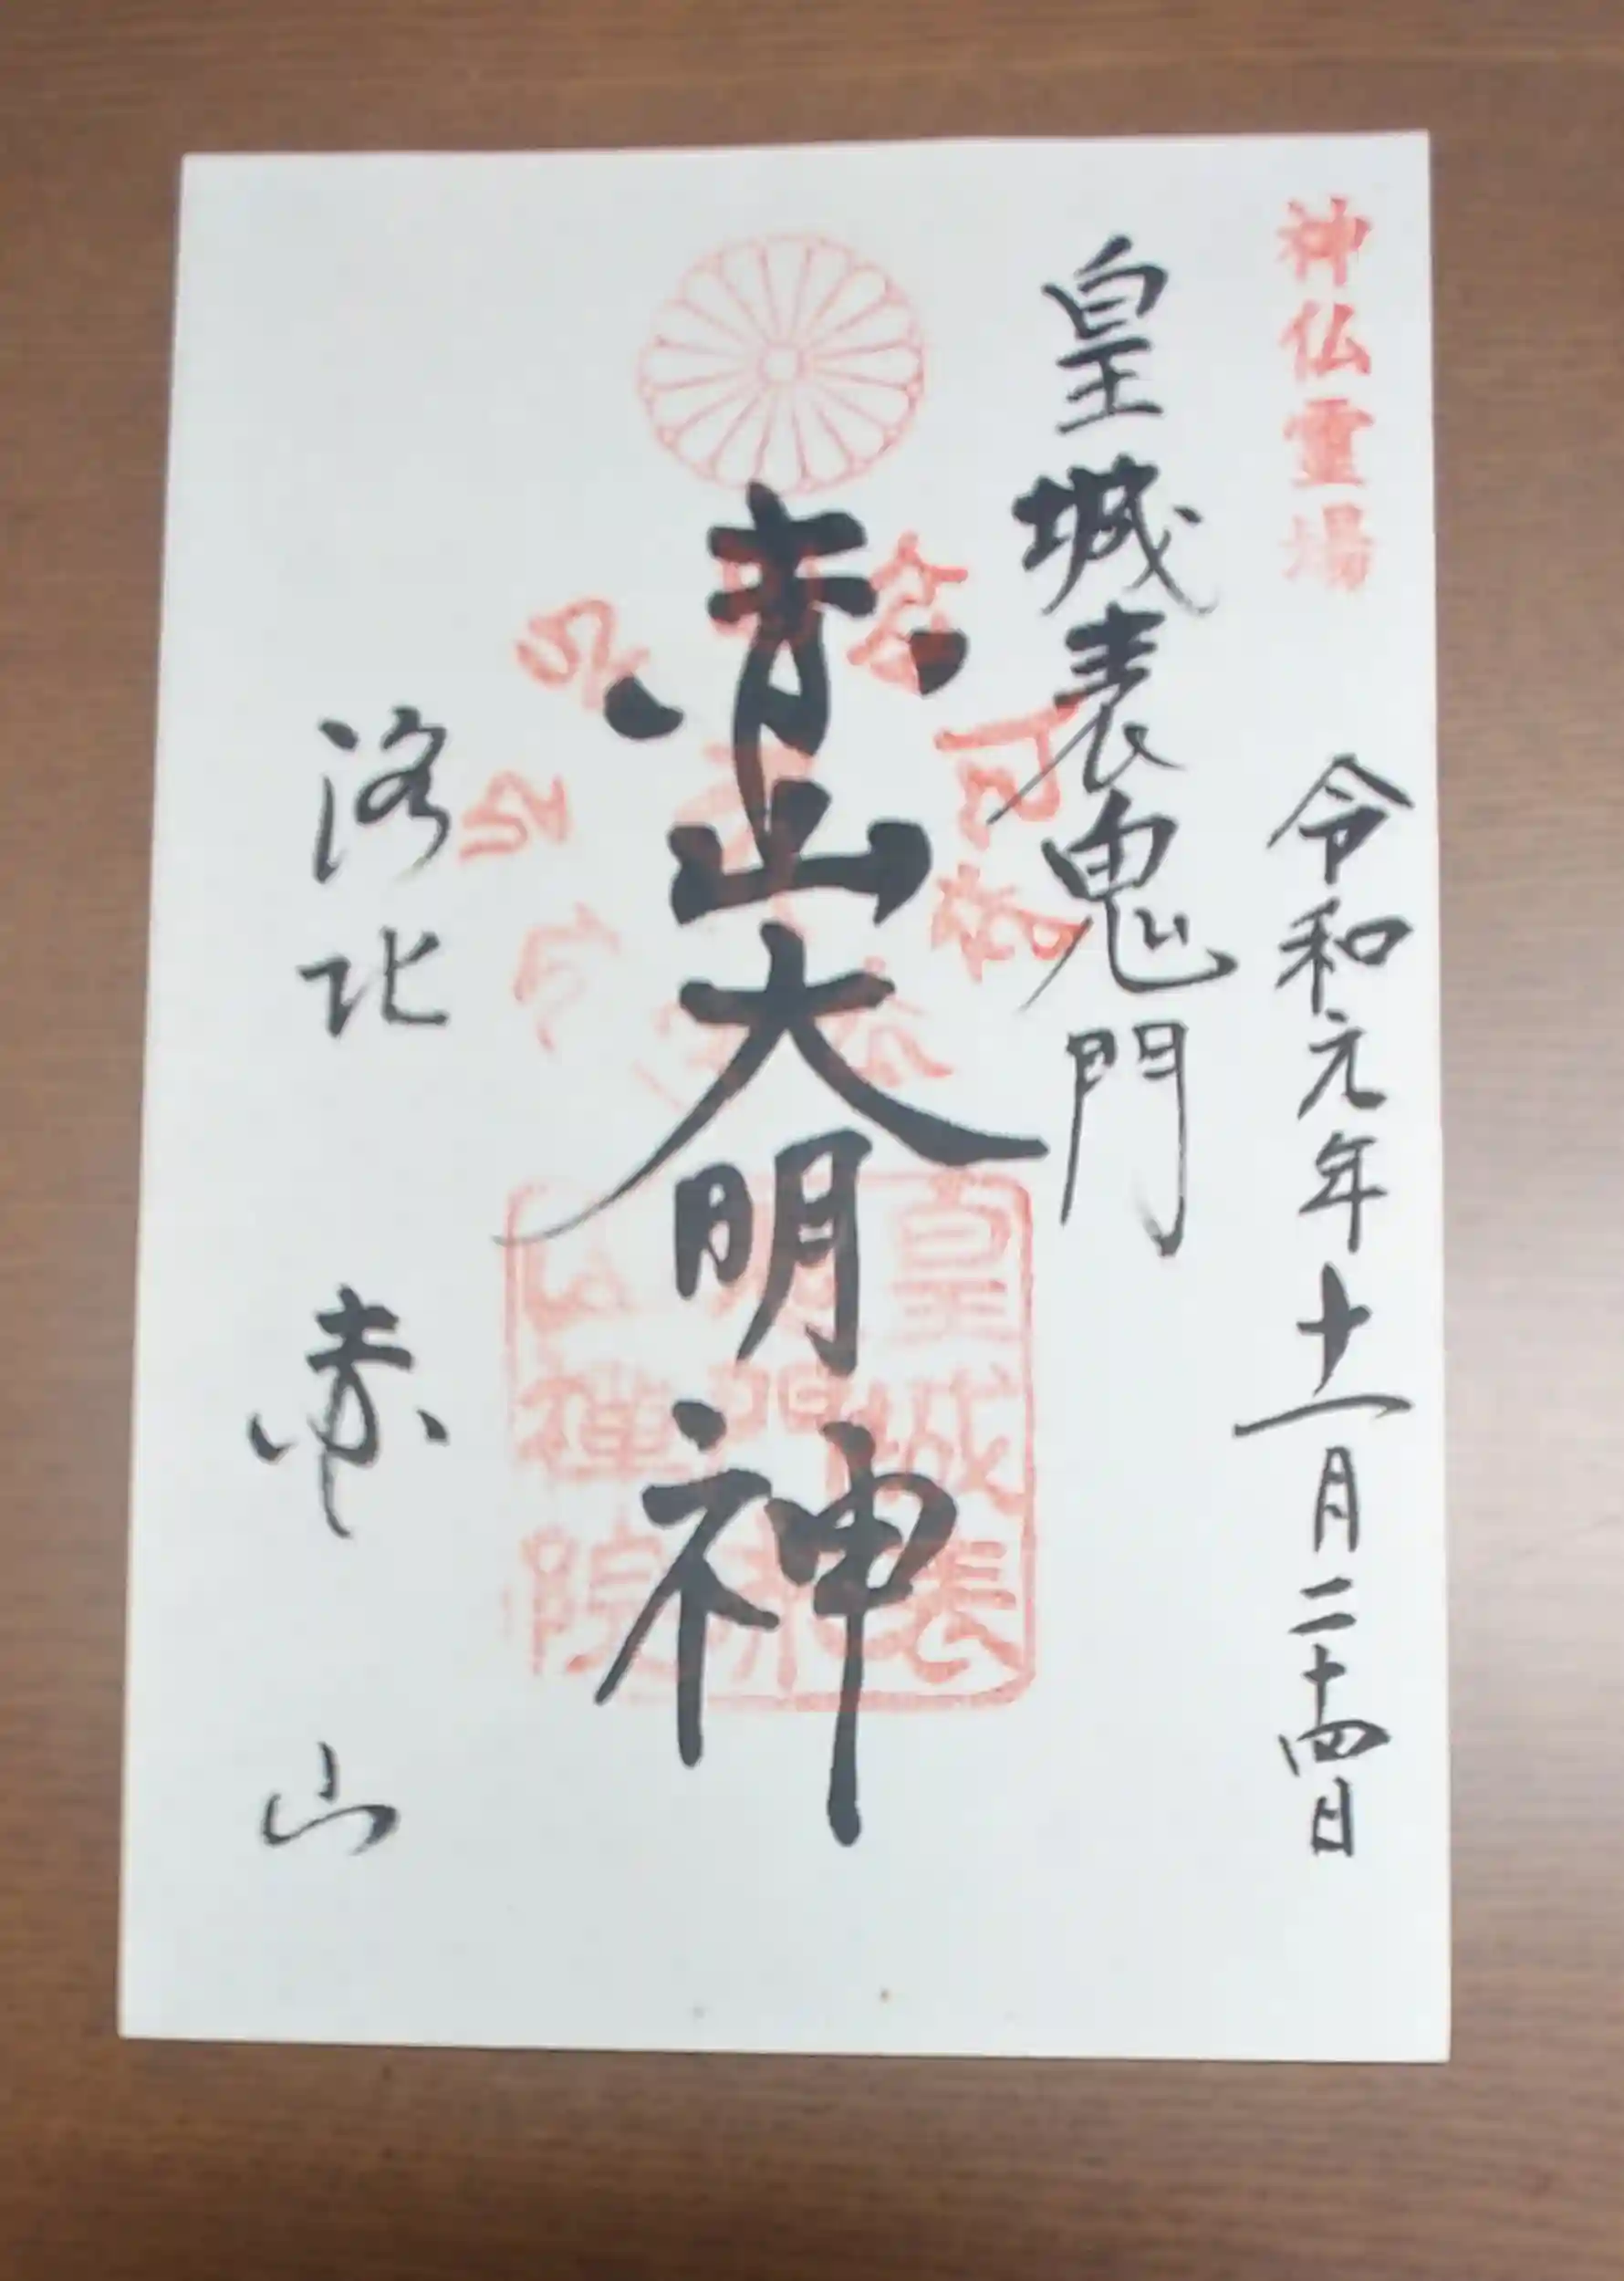 神仏霊場
令和元年十一月二十四日
皇城表鬼門
赤山大明神
皇城表
鬼門赤
山禪院
洛北 赤山